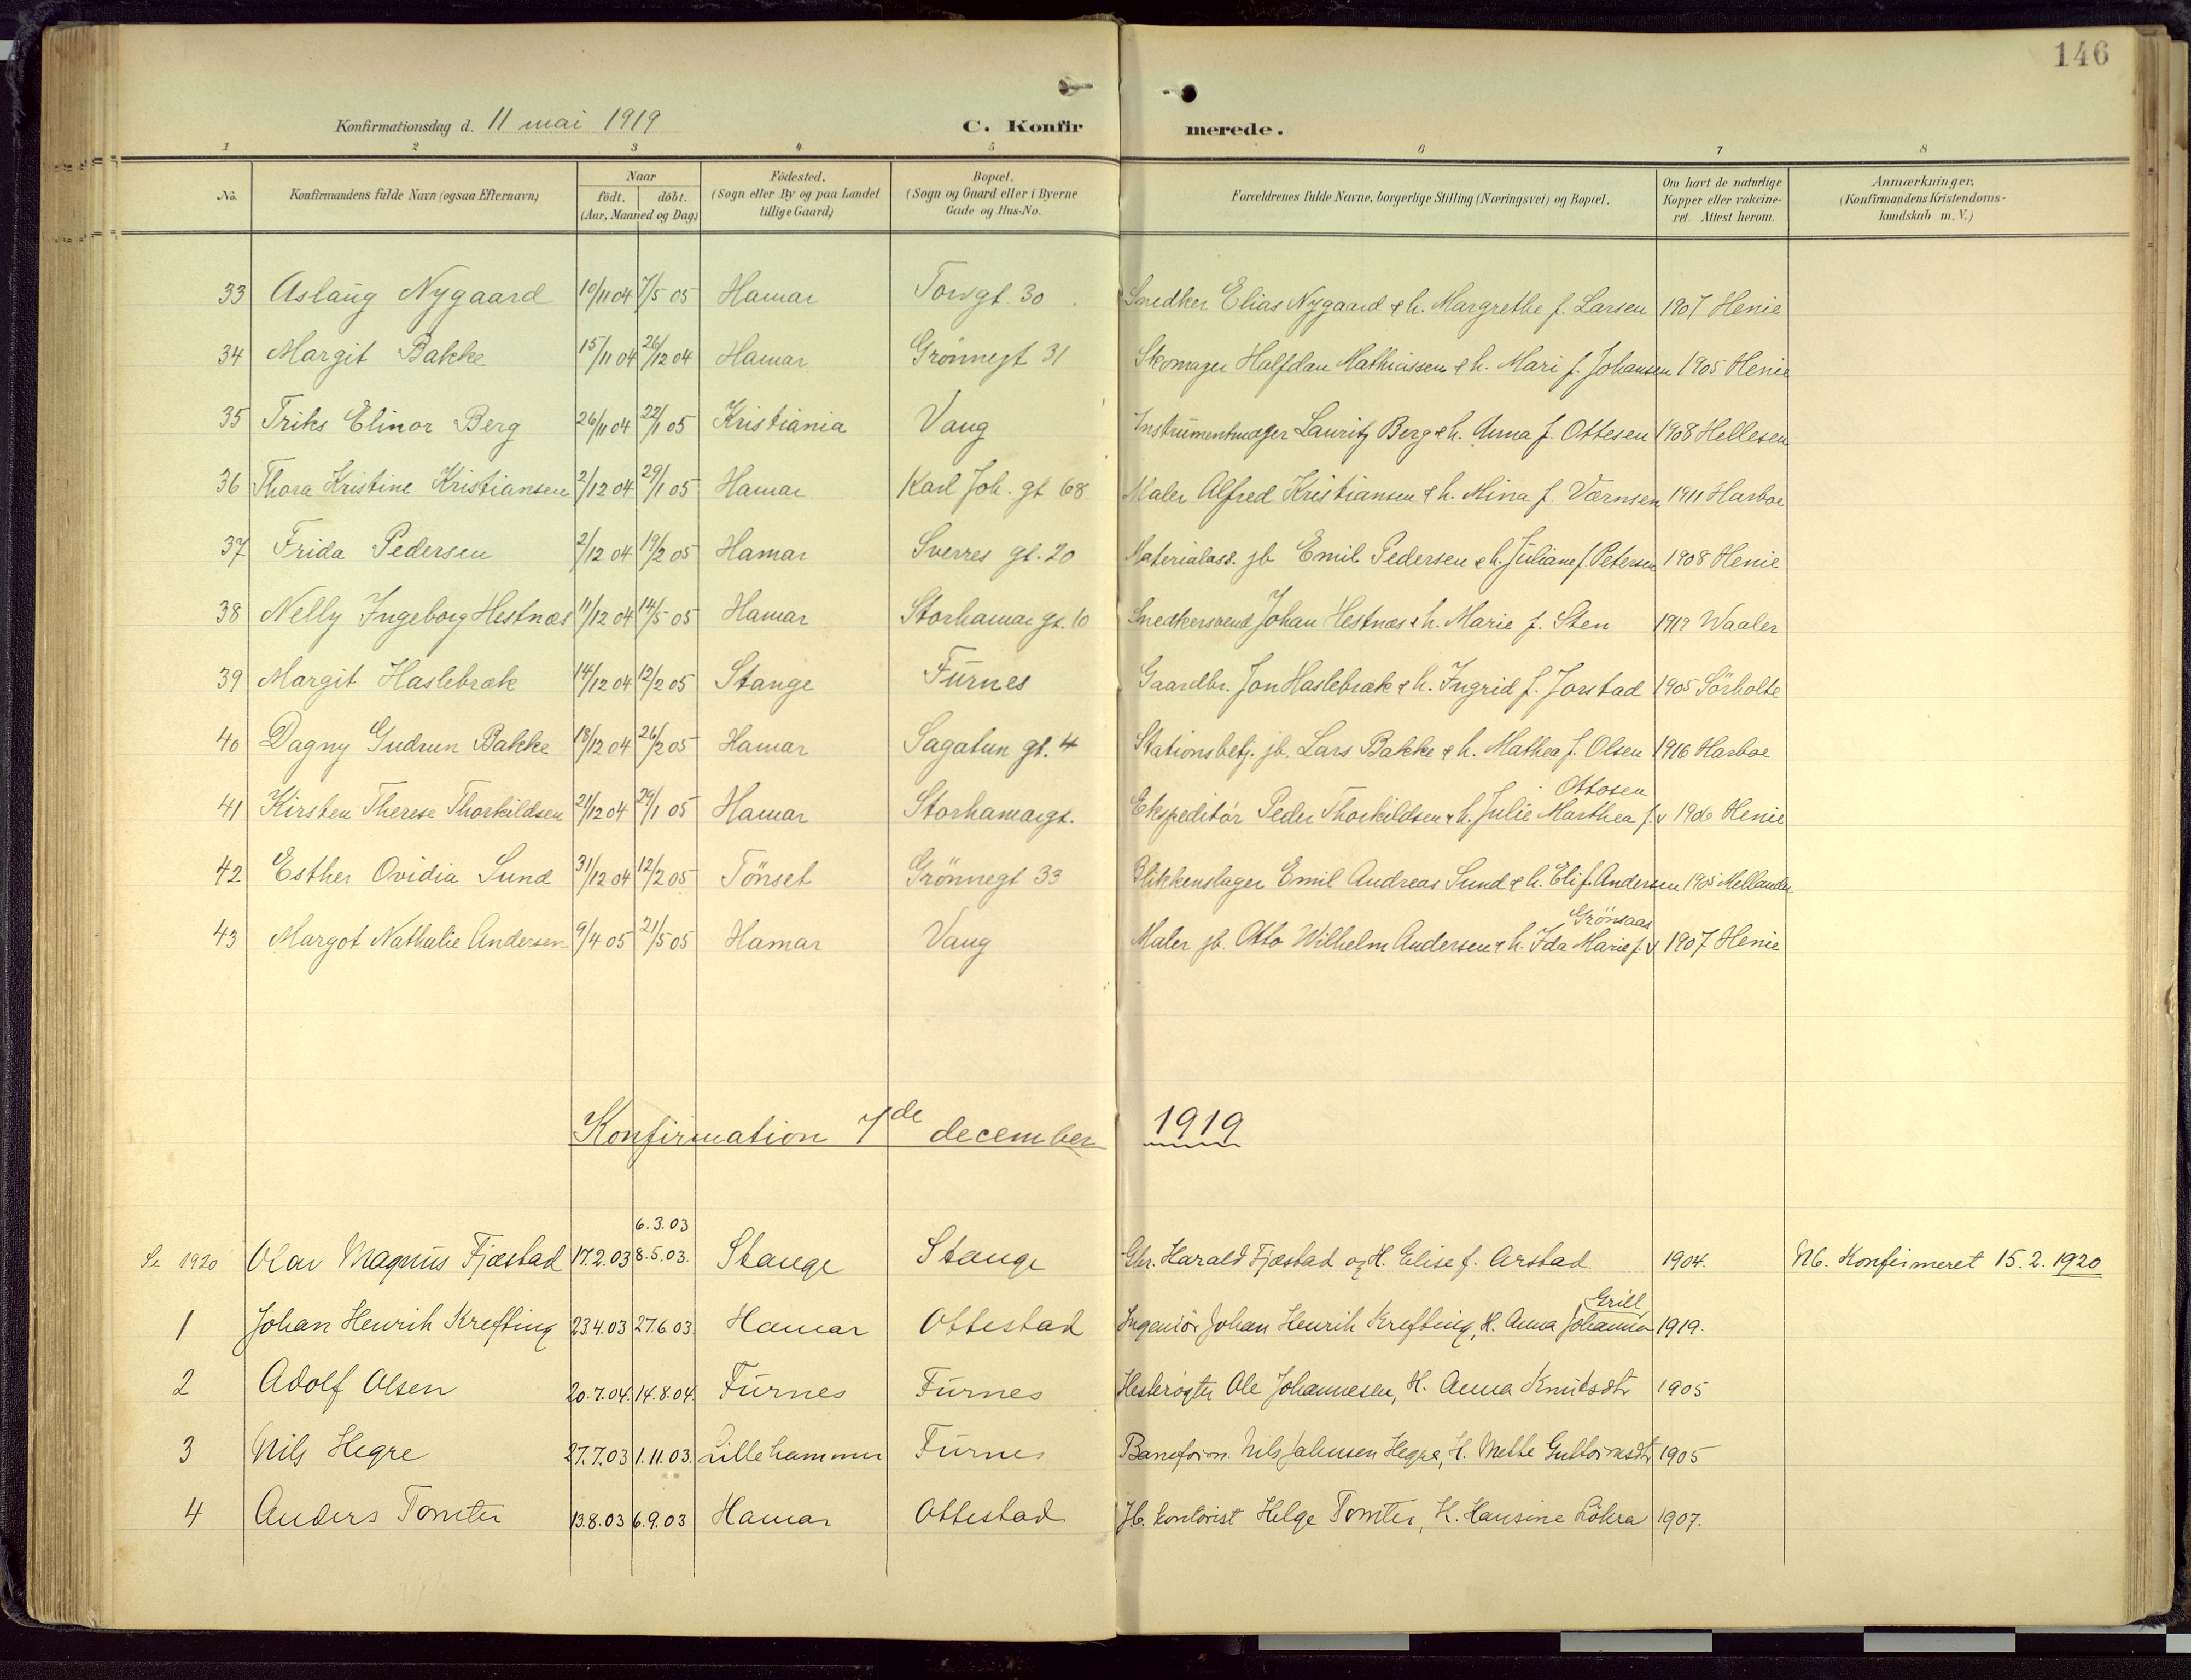 146
Konfirmationsdag d. 11 mai 1919 C. Konfir merede.
1 2 3 4 5 6 7 8
No. Konfirmandens fulde Navn (ogsaa Efternavn) Naar födt. döbt. (Aar, Maaned og Dag) Födested. (Sogn eller By og paa Landet tillige Gaard) Bopæl. (Sogn og Gaard eller i Byerne Gade og Hus-No. Forældrenes fulde Navne, borgerlige Stilling (Næringsvei) og Bopæl. Om havt de naturlige Kopper eller vakcineret. Attest herom. Anmærkninger. (Konfirmandens Kristendomskundskab m. V.)
33 Aslaug Nygaard 10/11 04 7/5 05 Hamar Torvgt. 30 Snedker Elias Nygaard & h. Margrethe f. Larsen 1907 Henie
34 Margit Bakke 15/11 04 26/12 04 Hamar Grönnegt 31 Skomager Halfdan Mathiassen & h. Mari f. Johansen 1905 Henie
35 Triks Elinor Berg 26/11 04 22/1 05 Kristiania Vang Instrumentmager Lauritz Berg & h. Anna f. Ottesen 1908 Hellesen
36 Thora Kristine Kristiansen 2/12 04 29/1 05 Hamar Karl Joh. gt 68 Maler Alfred Kristiansen & h. Mina f. Værnsen 1911 Harboe
37 Frida Pedersen 2/12 04 19/2 05 Hamar Sverres gt. 20 Materialass. jb Emil Pedersen & h. Juliane f. Petersen 1908 Henie
38 Nelly Ingeborg Hestnæs 11/12 04 14/5 05 Hamar Storhamar gt. 10 Snedkersvend Johan Hestnæs & h. Marie f. Sten 1919 Waaler
39 Margit Haslebræk 14/12 04 12/2 05 Stange Furnes Gaardbr. Jon Haslebræk & h. Ingrid f. Jorstad 1905 Sörholte
40 Dagny Gudrun Bakke 18/12 04 26/2 05 Hamar Sagatun gt. 4 Stationsbetj. jb. Lars Bakke & h. Mathea f. Olsen 1916 Harboe
41 Kirsten Therese Thorkildsen 21/12 04 29/1 05 Hamar Storhamargt. Ekspeditör Peder Thorkildsen & h. Julie Marthea f. Ottosen 1906 Henie
42 Esther Ovidia Sund 31/12 04 12/2 05 Tönset Grönnegt 33 Blikkenslager Emil Andreas Sund & h. Eli f. Andersen 1905 Mellander
43 Margot Nathalie Andersen 9/4 05 21/5 05 Hamar Vang Maler jb. Otto Wilhelm Andersen & h. Ida Marie f. Grönsaas 1907 Henie
Konfirmation 7de december 1919
Se 1920 Olav Magnus Fjæstad 17.2.03 6.3.03 8.5.03. Stange Stange Gbr. Harald Fjæstad og H. Elise f. Arstad. 1904. Nb. Konfirmeret 15.2.1920
1 Johan Henrik Krefting 23.4.03 27.6.03. Hamar Ottestad Ingeniör Johan Henrik Krefting, H. Anna Johanna Grill 1919.
2 Adolf Olsen 20.7.04. 14.8.04. Furnes Furnes Hesterögter Ole Johannesen, H. Anna Knutsdtr 1905
3 Nils Hegre 27.7.03 1.11.03. Lillehammer Furnes Baneform. Nils Hegre, H. Mette Guttormsdtr 1905
4 Anders Tomter 13.8.03 6.9.03 Hamar Ottestad Jb. kontorist Helge Tomter, H. Hansine Lökra 1907.